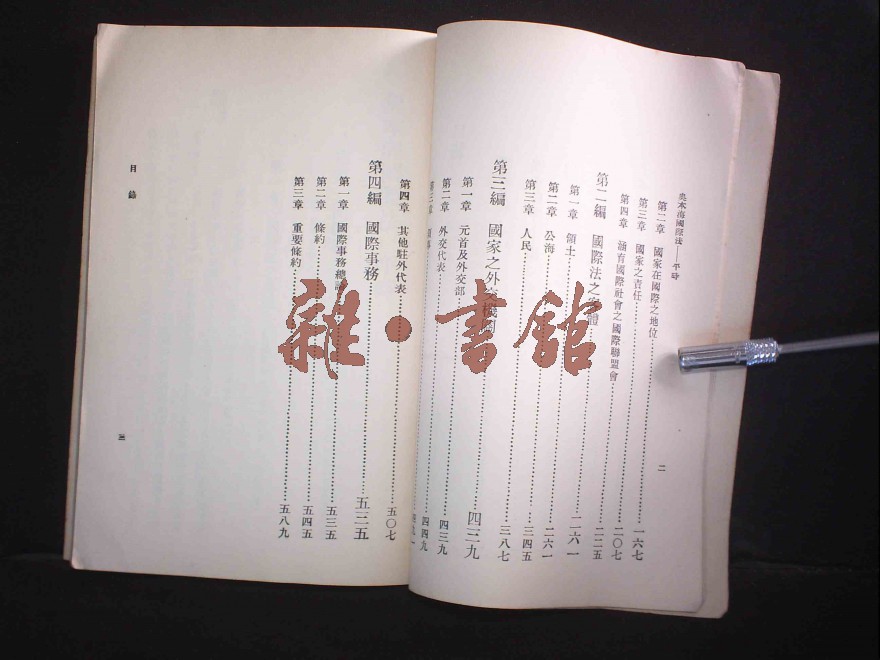 奧本海國際法——平時
第二章 國家在國際之地位……一六七
第三章 國家之責任……二〇七
第四章 涵育國際社會之國際聯盟會……二二五
第二編 國際法之客體……二六一
第一章 領土……二六一
第二章 公海……三四五
第三章 人民……三八七
第三編 國家之外交機關……四三九
第一章 元首及外交部……四三九
第二章 外交代表……四四九
第三章 領事……四九一
二
第四章 其他駐外代表……五〇七
第四編 國際事務……五三五
第一章 國際事務總論……五三五
第二章 條約……五四五
第三章 重要條約……五八九
目錄
三
雜·書館